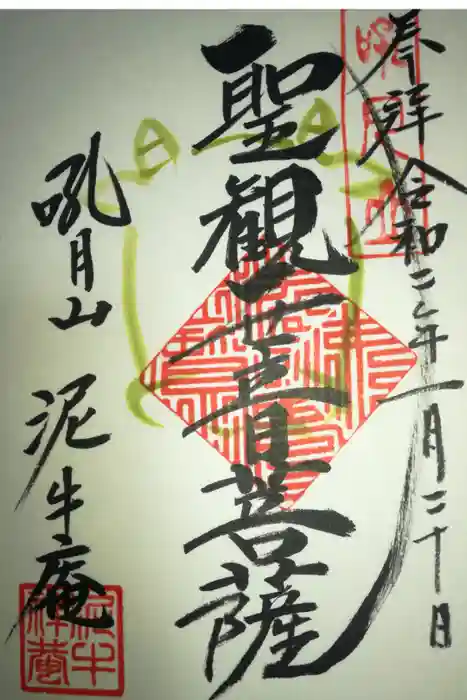 奉拝 令和二年一月二十日
聖観世音菩薩
吼月山 泥牛庵